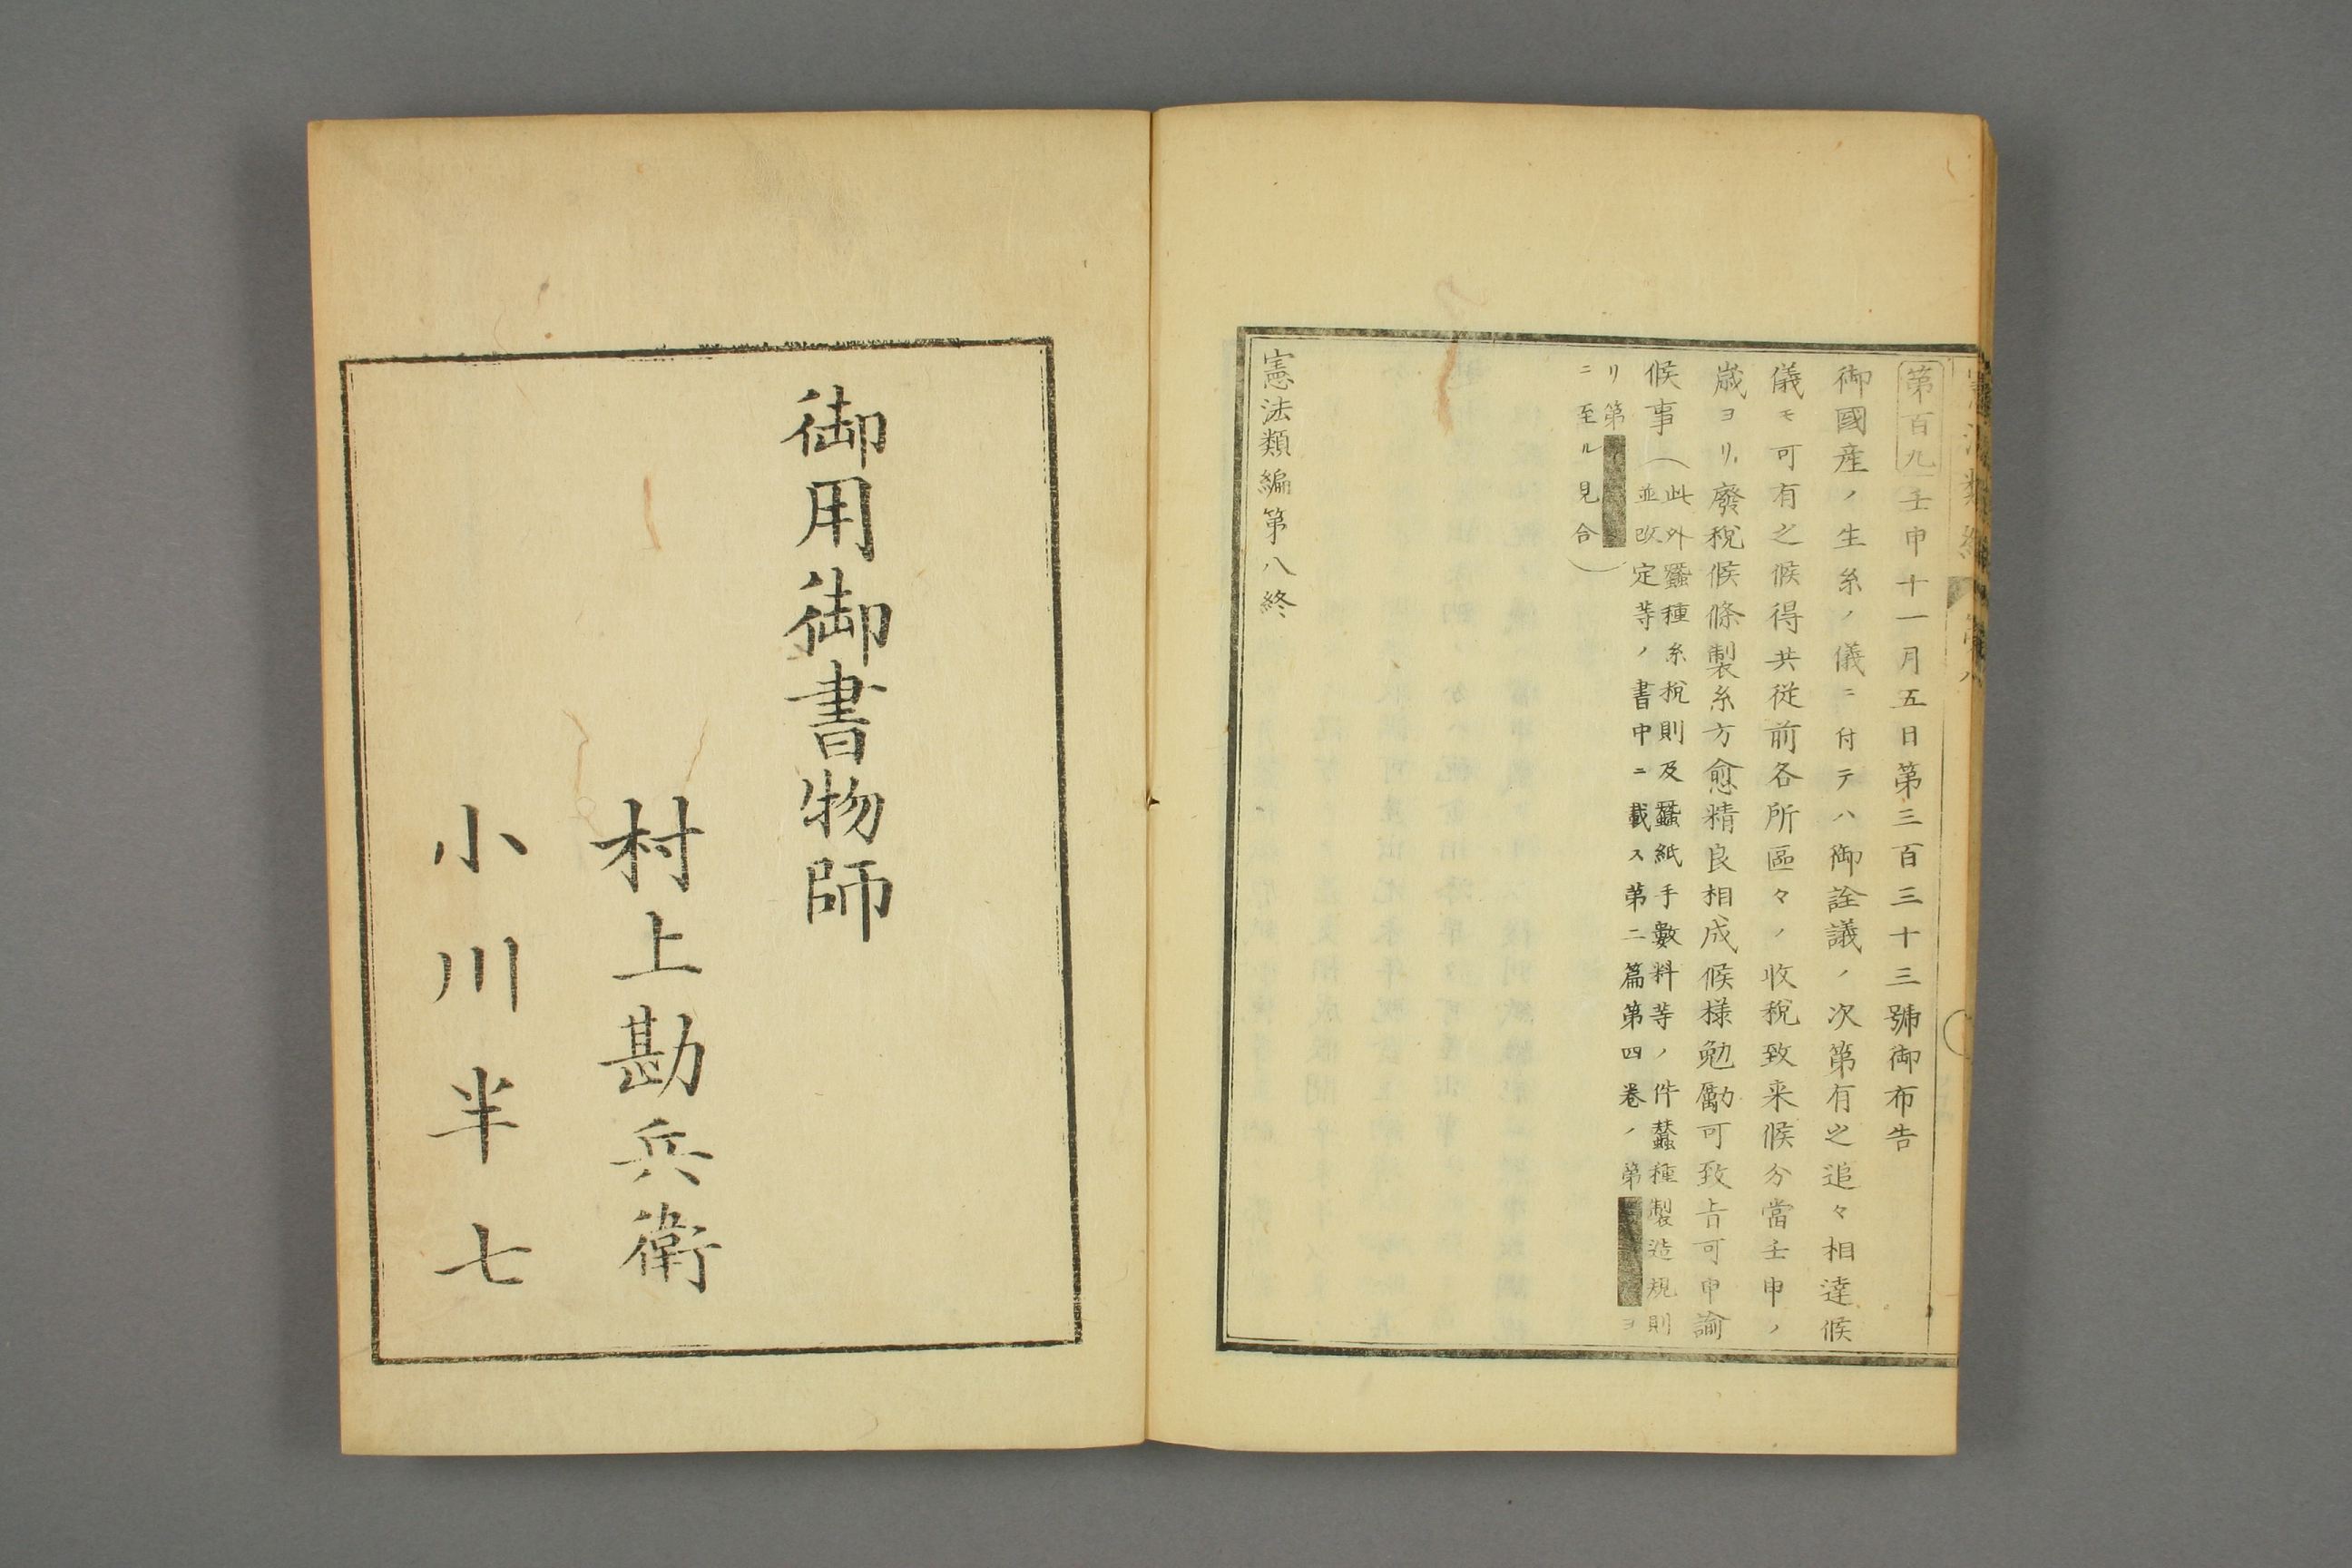 第百九 壬申十一月五日第三百三十三號御布告
御國産ノ生糸ノ儀ニ付テハ御詮議ノ次第有之追々相達候
儀モ可有之候得共従前各所區々ノ收税致来候分當壬申ノ
歳ヨリ廢税候條製糸方愈精良相成候様勉勵可致旨可申諭
候事（此外蠶種糸税則及蠶紙手數料等ノ件蠶種製造規則
並改定等ノ書中ニ載ス第二篇第四卷ノ第 ヨ
リ第
ニ至ル見合）
憲法類編第八終
御用御書物師
村上勘兵衛
小川半七